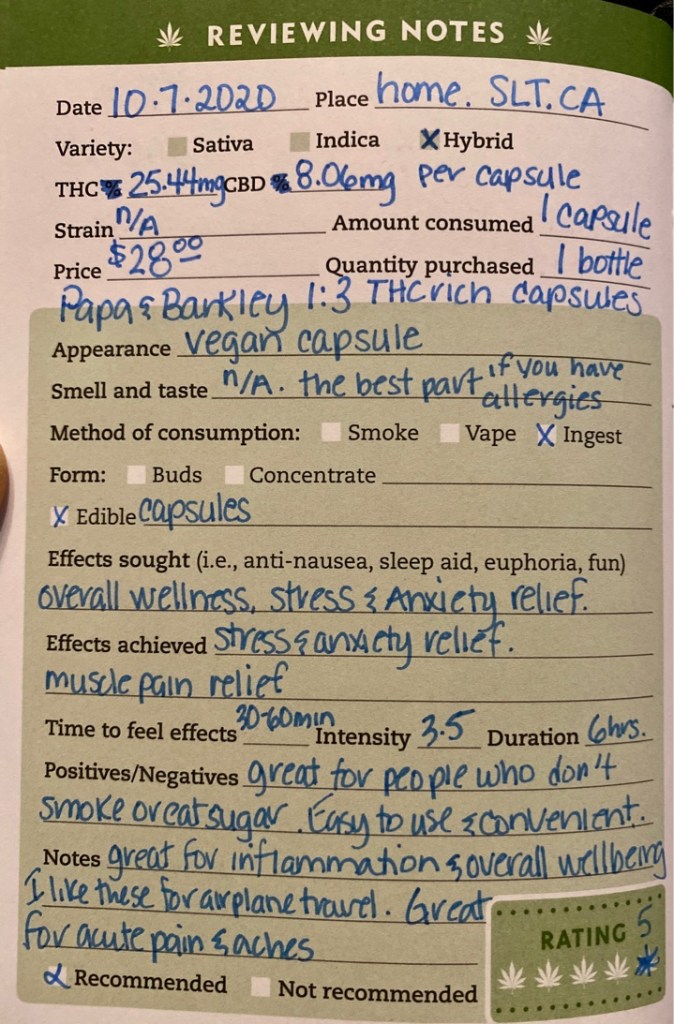 REVIEWING NOTES
Date 10.7.2020 Place home. SLT. CA
Variety: Sativa Indica X Hybrid
THC % 25.44mg CBD % 8.06mg per capsule
Strain n/A Amount consumed 1 capsule
Price $28.00 Quantity purchased 1 bottle
Papa & Barkley 1:3 THC rich capsules
Appearance vegan capsule
Smell and taste n/A. the best part if you have allergies
Method of consumption: Smoke Vape X Ingest
Form: Buds Concentrate
X Edible capsules
Effects sought (i.e., anti-nausea, sleep aid, euphoria, fun)
overall wellness, stress & Anxiety relief.
Effects achieved stress & anxiety relief.
muscle pain relief
Time to feel effects 30-60min Intensity 3.5 Duration 6hrs.
Positives/Negatives great for people who don't
smoke or eat sugar. Easy to use & convenient.
Notes great for inflammation & overall wellbeing
I like these for airplane travel. Great
for acute pain & aches
RATING 5
X Recommended Not recommended